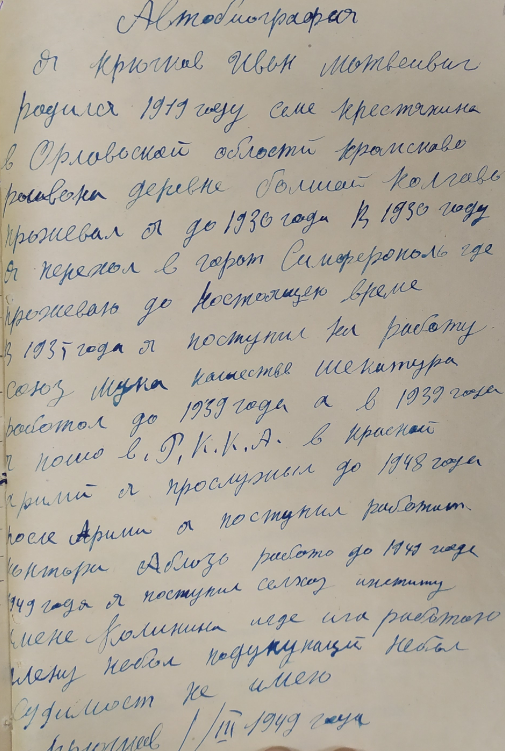 Автобиография
Я Крючков Иван Матвеивич
родился 1919 году семе крестянина
в Орловской области кромсково
раивона деревне болшой Колчево
прожевал я до 1930 года В 1930 году
я перехол в горот Симферополь где
прожеваю до Настоящею време
В 1935 года я поступил на работу
союз мука качестве шекатура
работал до 1939 года а в 1939 года
я пошо в. Р, К. К. А. в красной
Аримий я прослужыл до 1948 года
после Арими я поступил работат.
контора Аблозо работо до 1949 годе
1949 года я поступил селхоз инститиу
имене Калинина где работаю
плену небол подукупацей небол
Судимост не имею
Крючков 1/III-1949 года